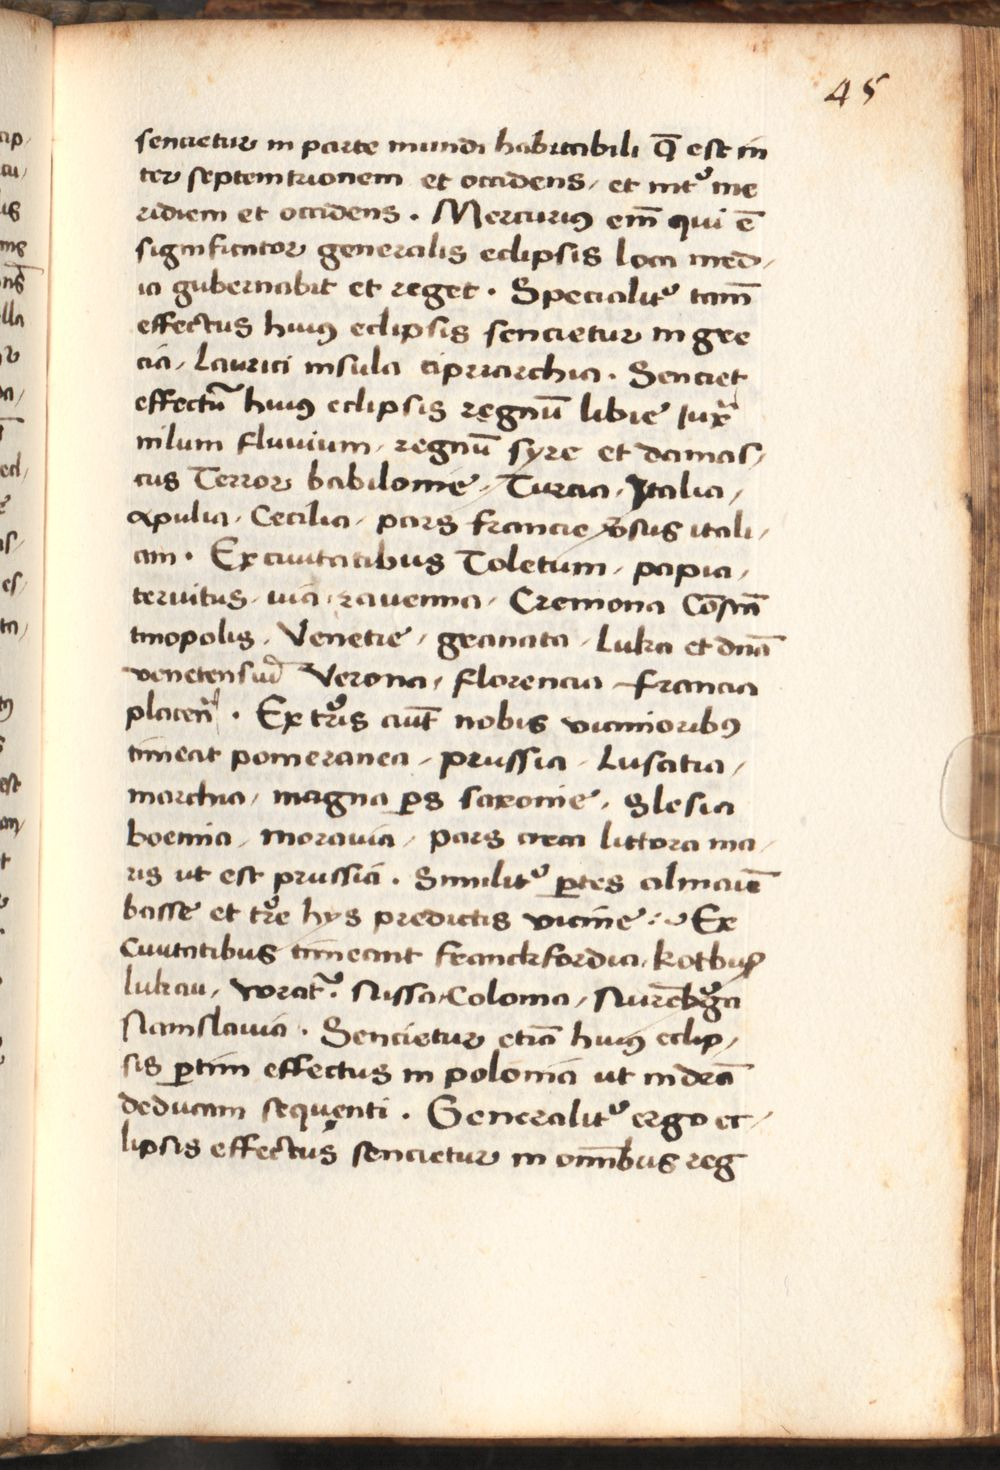 45
sencietur in parte mundi habitabili q̄ est in
ter septemtrionem et occidens, et int᷒ me
ridiem et occidens. Mercuriꝰ em̄ qui ē
significator generalis eclipsis loca med,
ia gubernabit et reget. Specialit᷒ tam̄
effectus huiꝰ eclipsis sencietur in gre
cia, Laurici insula cipriarchia. Senciet
effectū huiꝰ eclipsis regnū libie Iuxͣ
nilum fluvium, regnū syre et damas,
cus Terror babilonie, Turcia, Italia,
Apulia, Cecilia, pars francie v̓sus itali,
am. Ex civitatibus Toletum, papia,
tervitus, via, ravenna, Cremona Cōstā
tinopolis, Venetie, granata, Luka et dnā
venetensiū Verona, florencia francia
placen̄. Ex tr̓is aūt nobis vicinioribꝰ
timeat pomeranea, prussia, Lusatia,
marchia, magna ꝑs saxonie, Slesia
boemia, moravia, pars circa littora ma,
ris ut est prussia. Similit᷒ ꝑtes almaīe
basse et tr̓e hys predictis vicine: Ex
Civitatibus timeant franckfordia, kotbus
lukau, wrat᷒. Nissa, Colonia, Nurēb̓ga
Namslavia. Sencietur etiā huiꝰ eclip,
sis ꝑtim effectus in polonia ut in deā
deducam sequenti. Generalit᷒ ergo ec,
lipsis effectus sencietur in om̄ibus reg